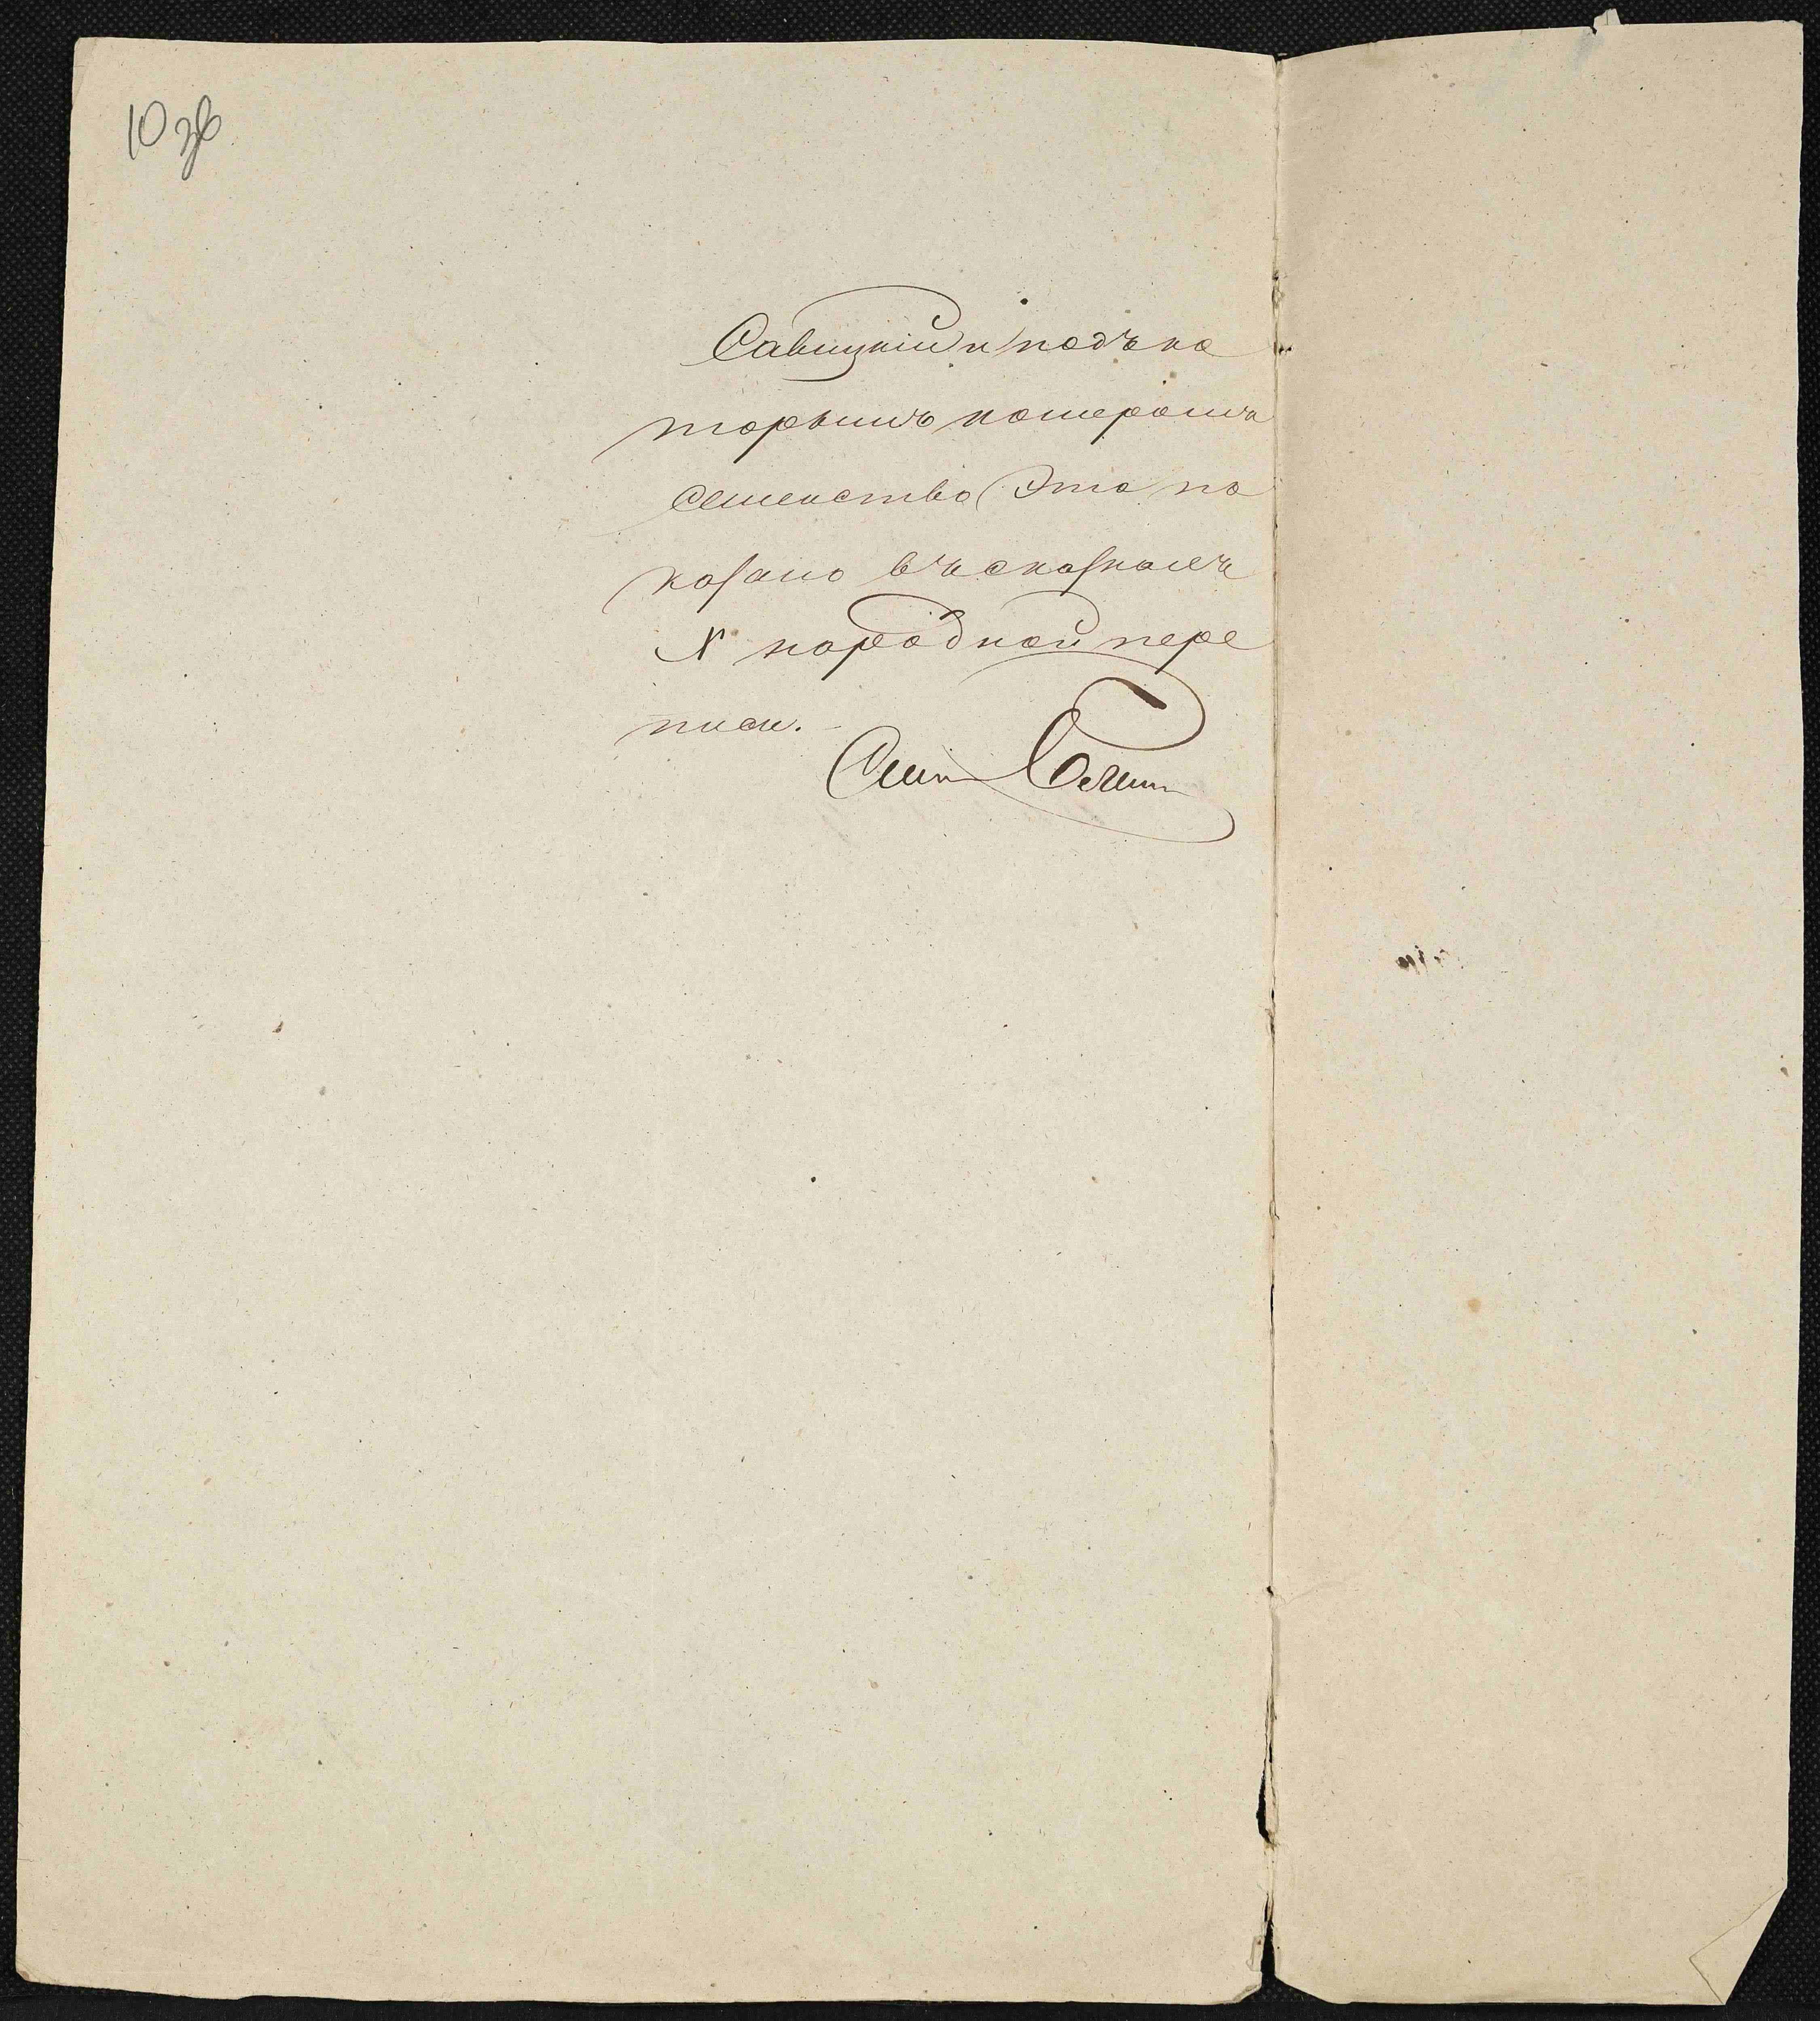 10 зв
Савицкій и подъ ко
торымъ номеромъ
семейство Это по
казано въ сказкахъ
X народной пере
писи.